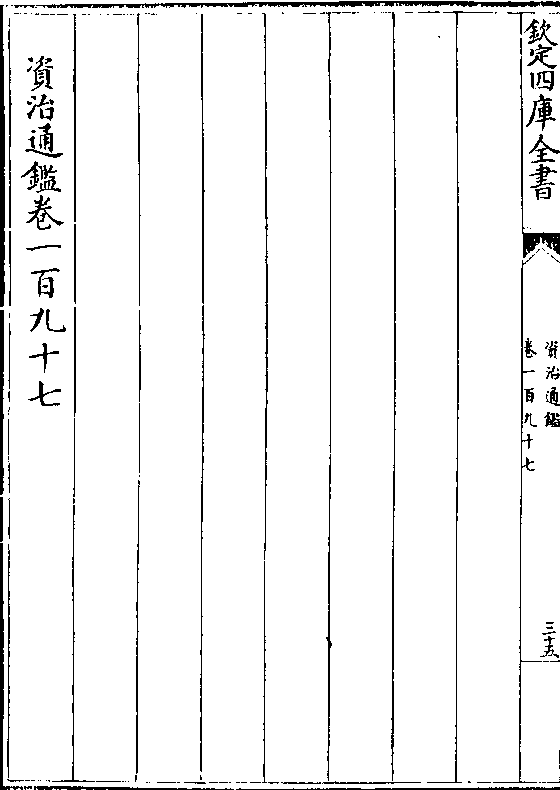 欽定四庫全書
資治通鑑
卷一百九十七
三十五
資治通鑑卷一百九十七